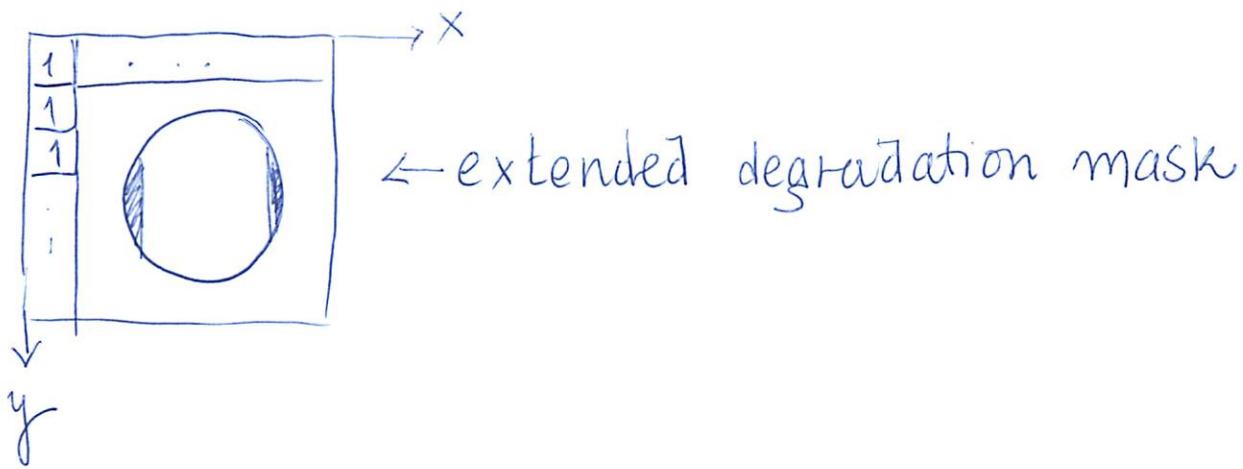 x
1 . . .
1
1
← extended degradation mask
.
:
y